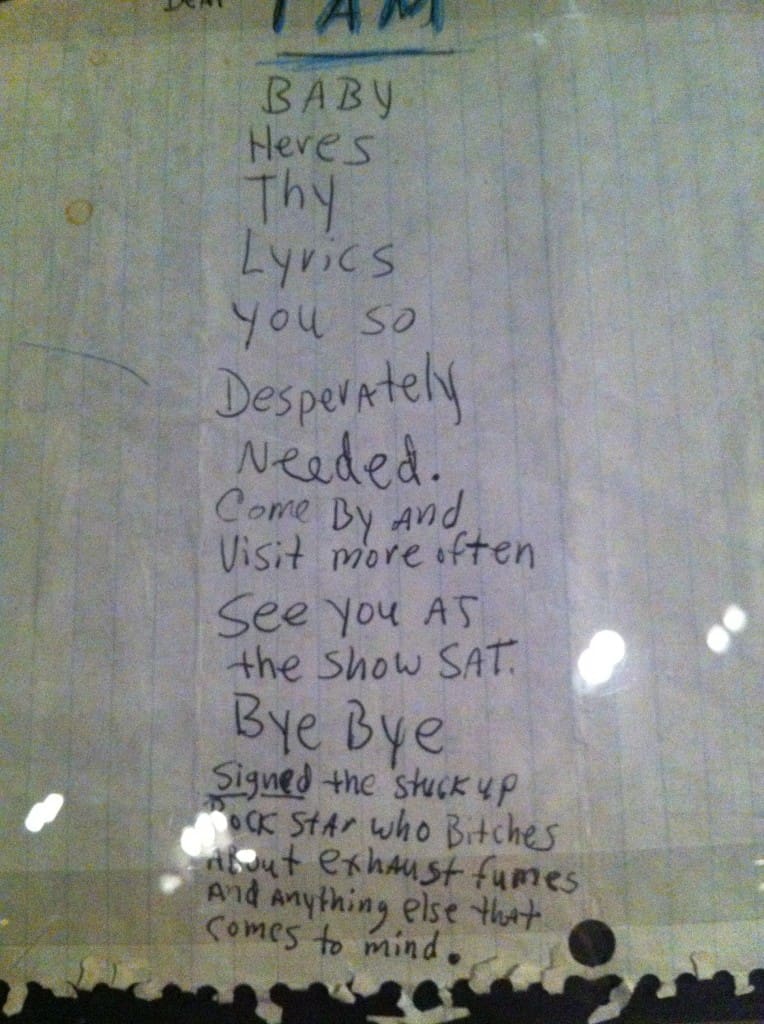 Dear TAM
BABY
Heres
Thy
Lyrics
You so
Desperately
Needed.
Come By and
Visit more often
See you AT
the show SAT.
Bye Bye
Signed the stuck up
Rock Star who Bitches
About exhaust fumes
And Anything else that
comes to mind.